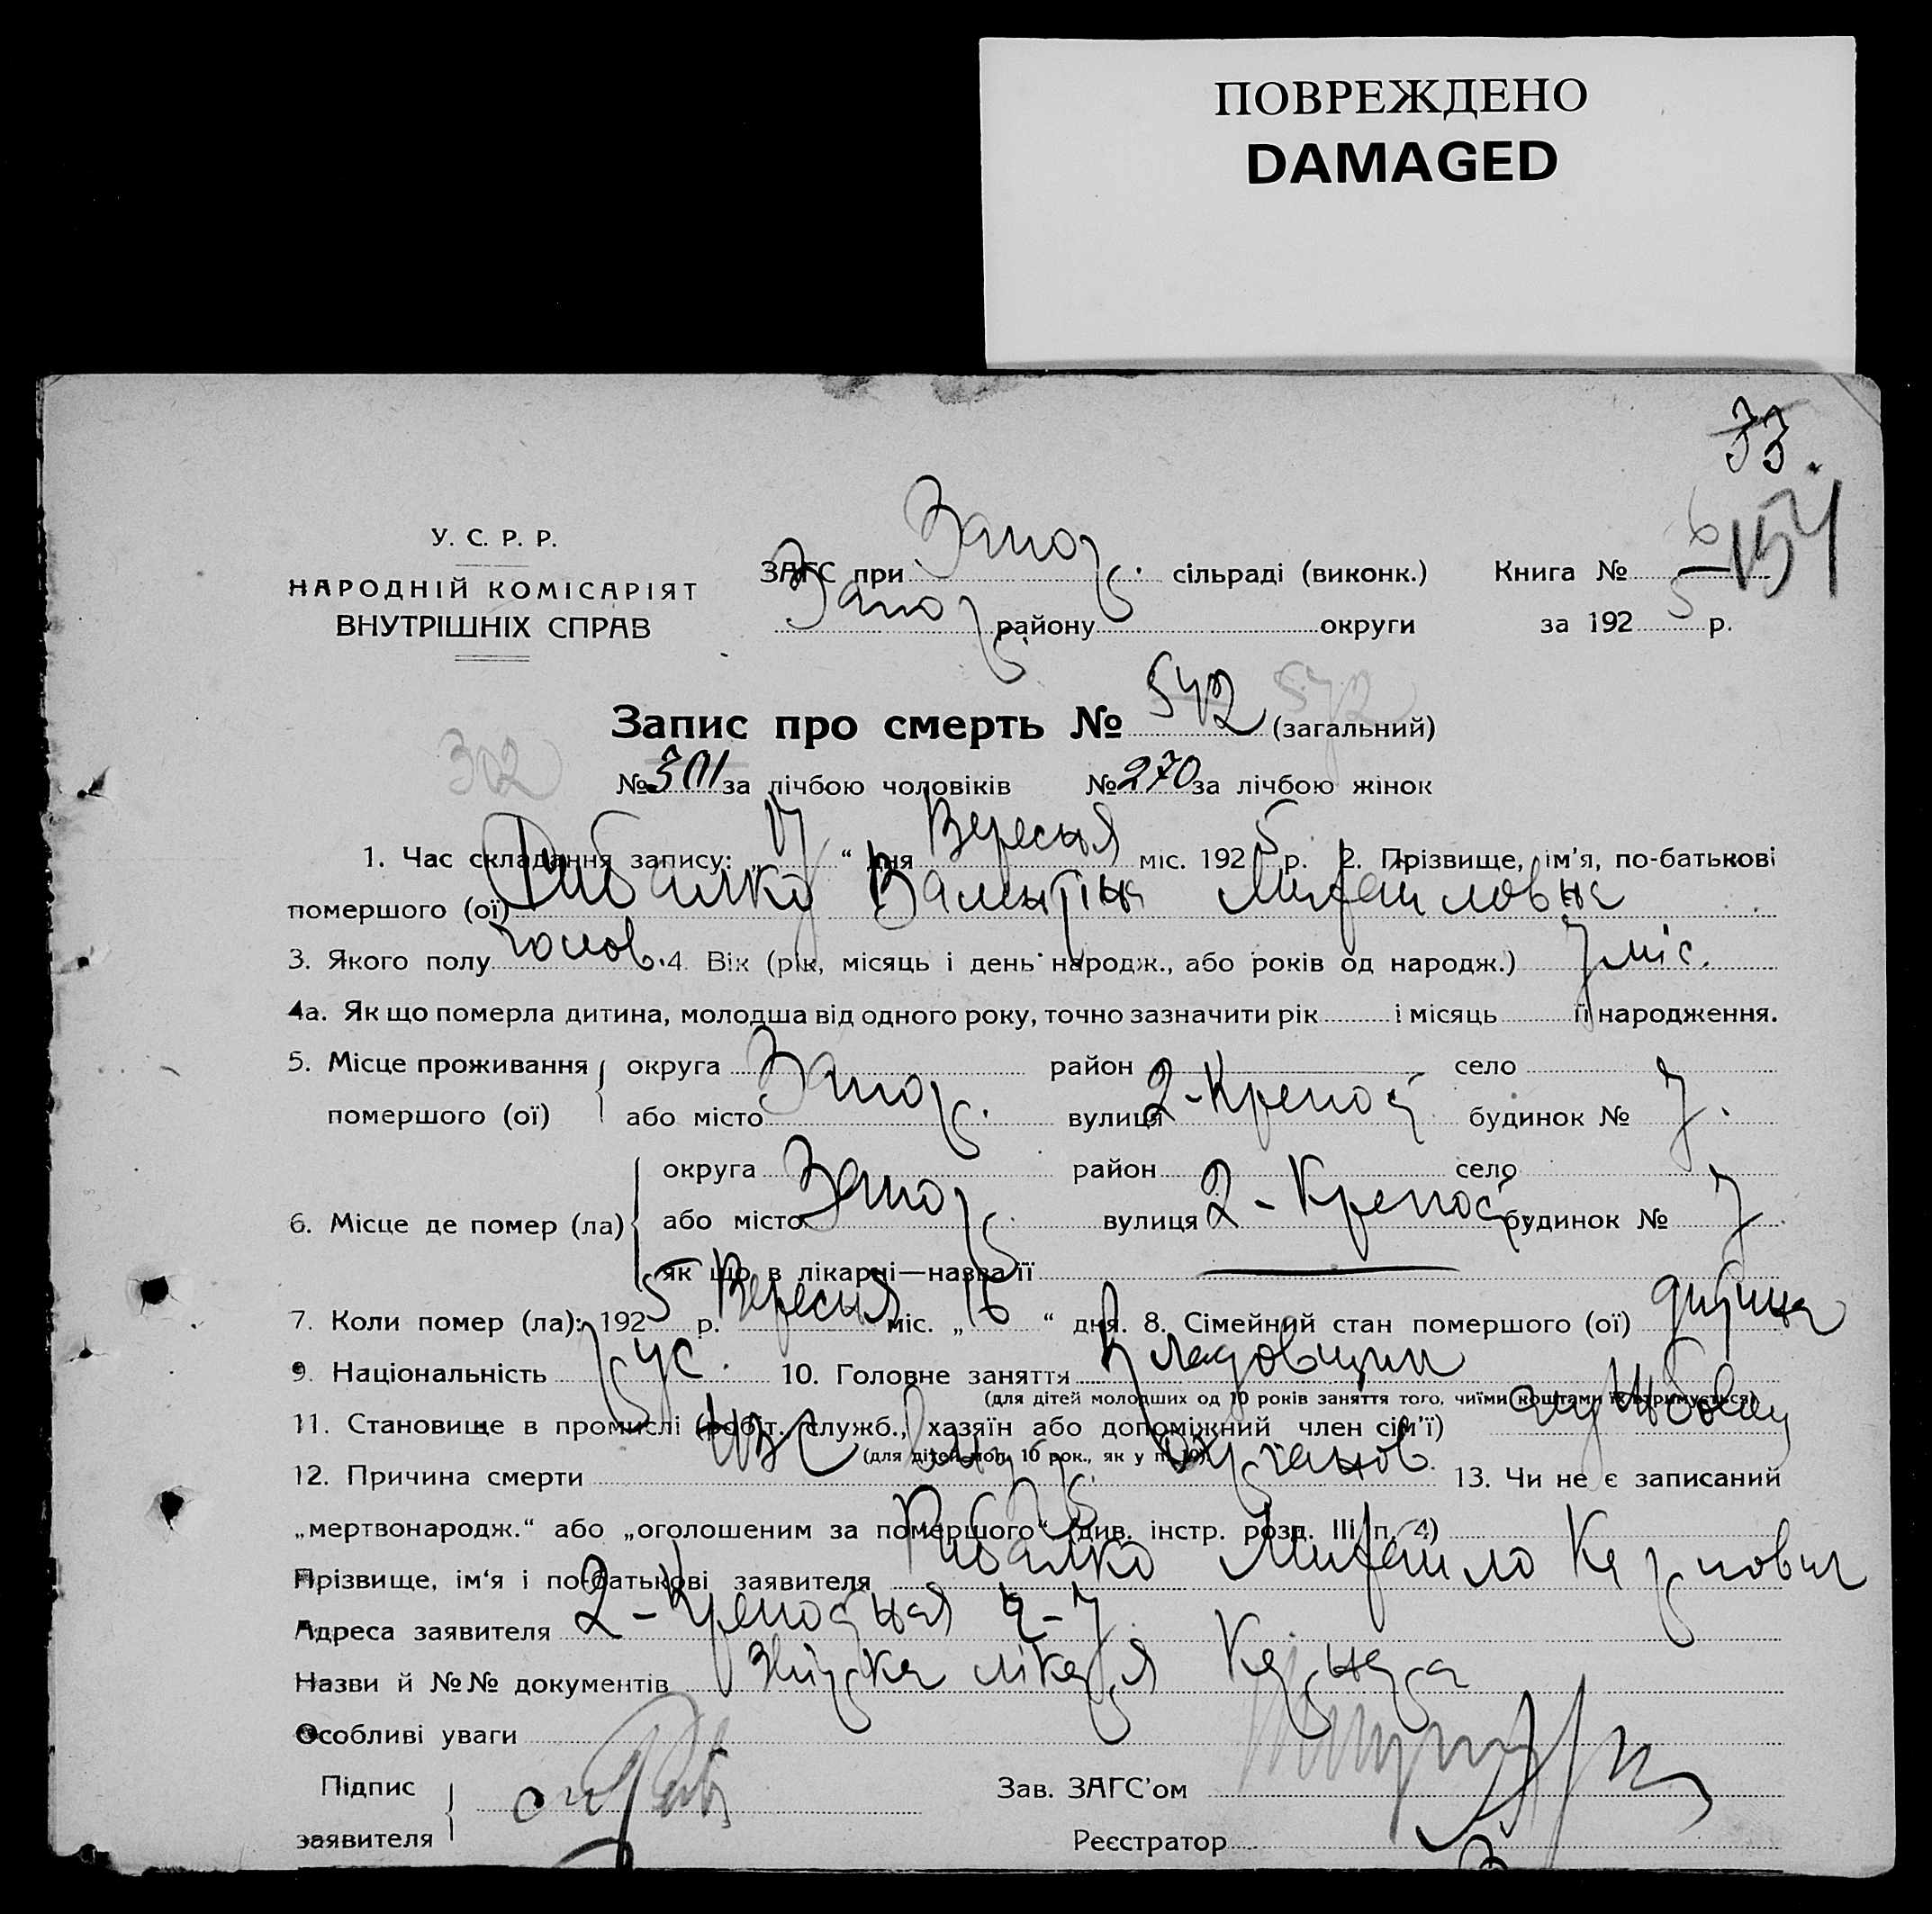 ПОВРЕЖДЕНО
DAMAGED
33.
154
У. С. Р. Р.
НАРОДНІЙ КОМІСАРІЯТ
ВНУТРІШНІХ СПРАВ
ЗАГС при Запор. сільраді (виконк.) Книга № 6
Запор. району округи за 1925 р.
Запис про смерть № 572 572 (загальний)
302 № 301 за лічбою чоловіків № 270 за лічбою жінок
1. Час складання запису: „17“ дня Вересня міс. 1925 р. 2. Прізвище, ім'я, по-батькові
помершого (ої) Рибалко Валентіна Михайловна
3. Якого полу 4. Вік (рік, місяць і день народж., або років од народж.) 7 міс.
4а. Як що померла дитина, молодша від одного року, точно зазначити рік і місяць її народження.
5. Місце проживання округа Запор. район село
помершого (ої) або місто вулиця 2-Крепос будинок № 7.
округа Запор. район село
6. Місце де помер (ла) або місто вулиця 2-Крепос. будинок № 7
як що в лікарні—назва її
7. Коли помер (ла): 1925 р. Вересня міс. „16“ дня. 8. Сімейний стан помершого (ої) дитина
9. Національність рус. 10. Головне заняття Кладовщик
(для дітей молодших од 10 років заняття того, чиїми коштами їх утримується)
11. Становище в промислі (робіт., служб., хазяїн або допоміжний член сім'ї)
(для дітей мол. 10 рок., як у п. 10).
12. Причина смерти 13. Чи не є записаний
„мертвонародж.“ або „оголошеним за помершого“ (див. інстр. розд. III п. 4)
Прізвище, ім'я і по-батькові заявителя Рибалко Михайло Карпович
Адреса заявителя 2-Крепосная ч-7.
Назви й №№ документів лікаря
Особливі уваги
Підпис
заявителя
Зав. ЗАГС'ом
Реєстратор